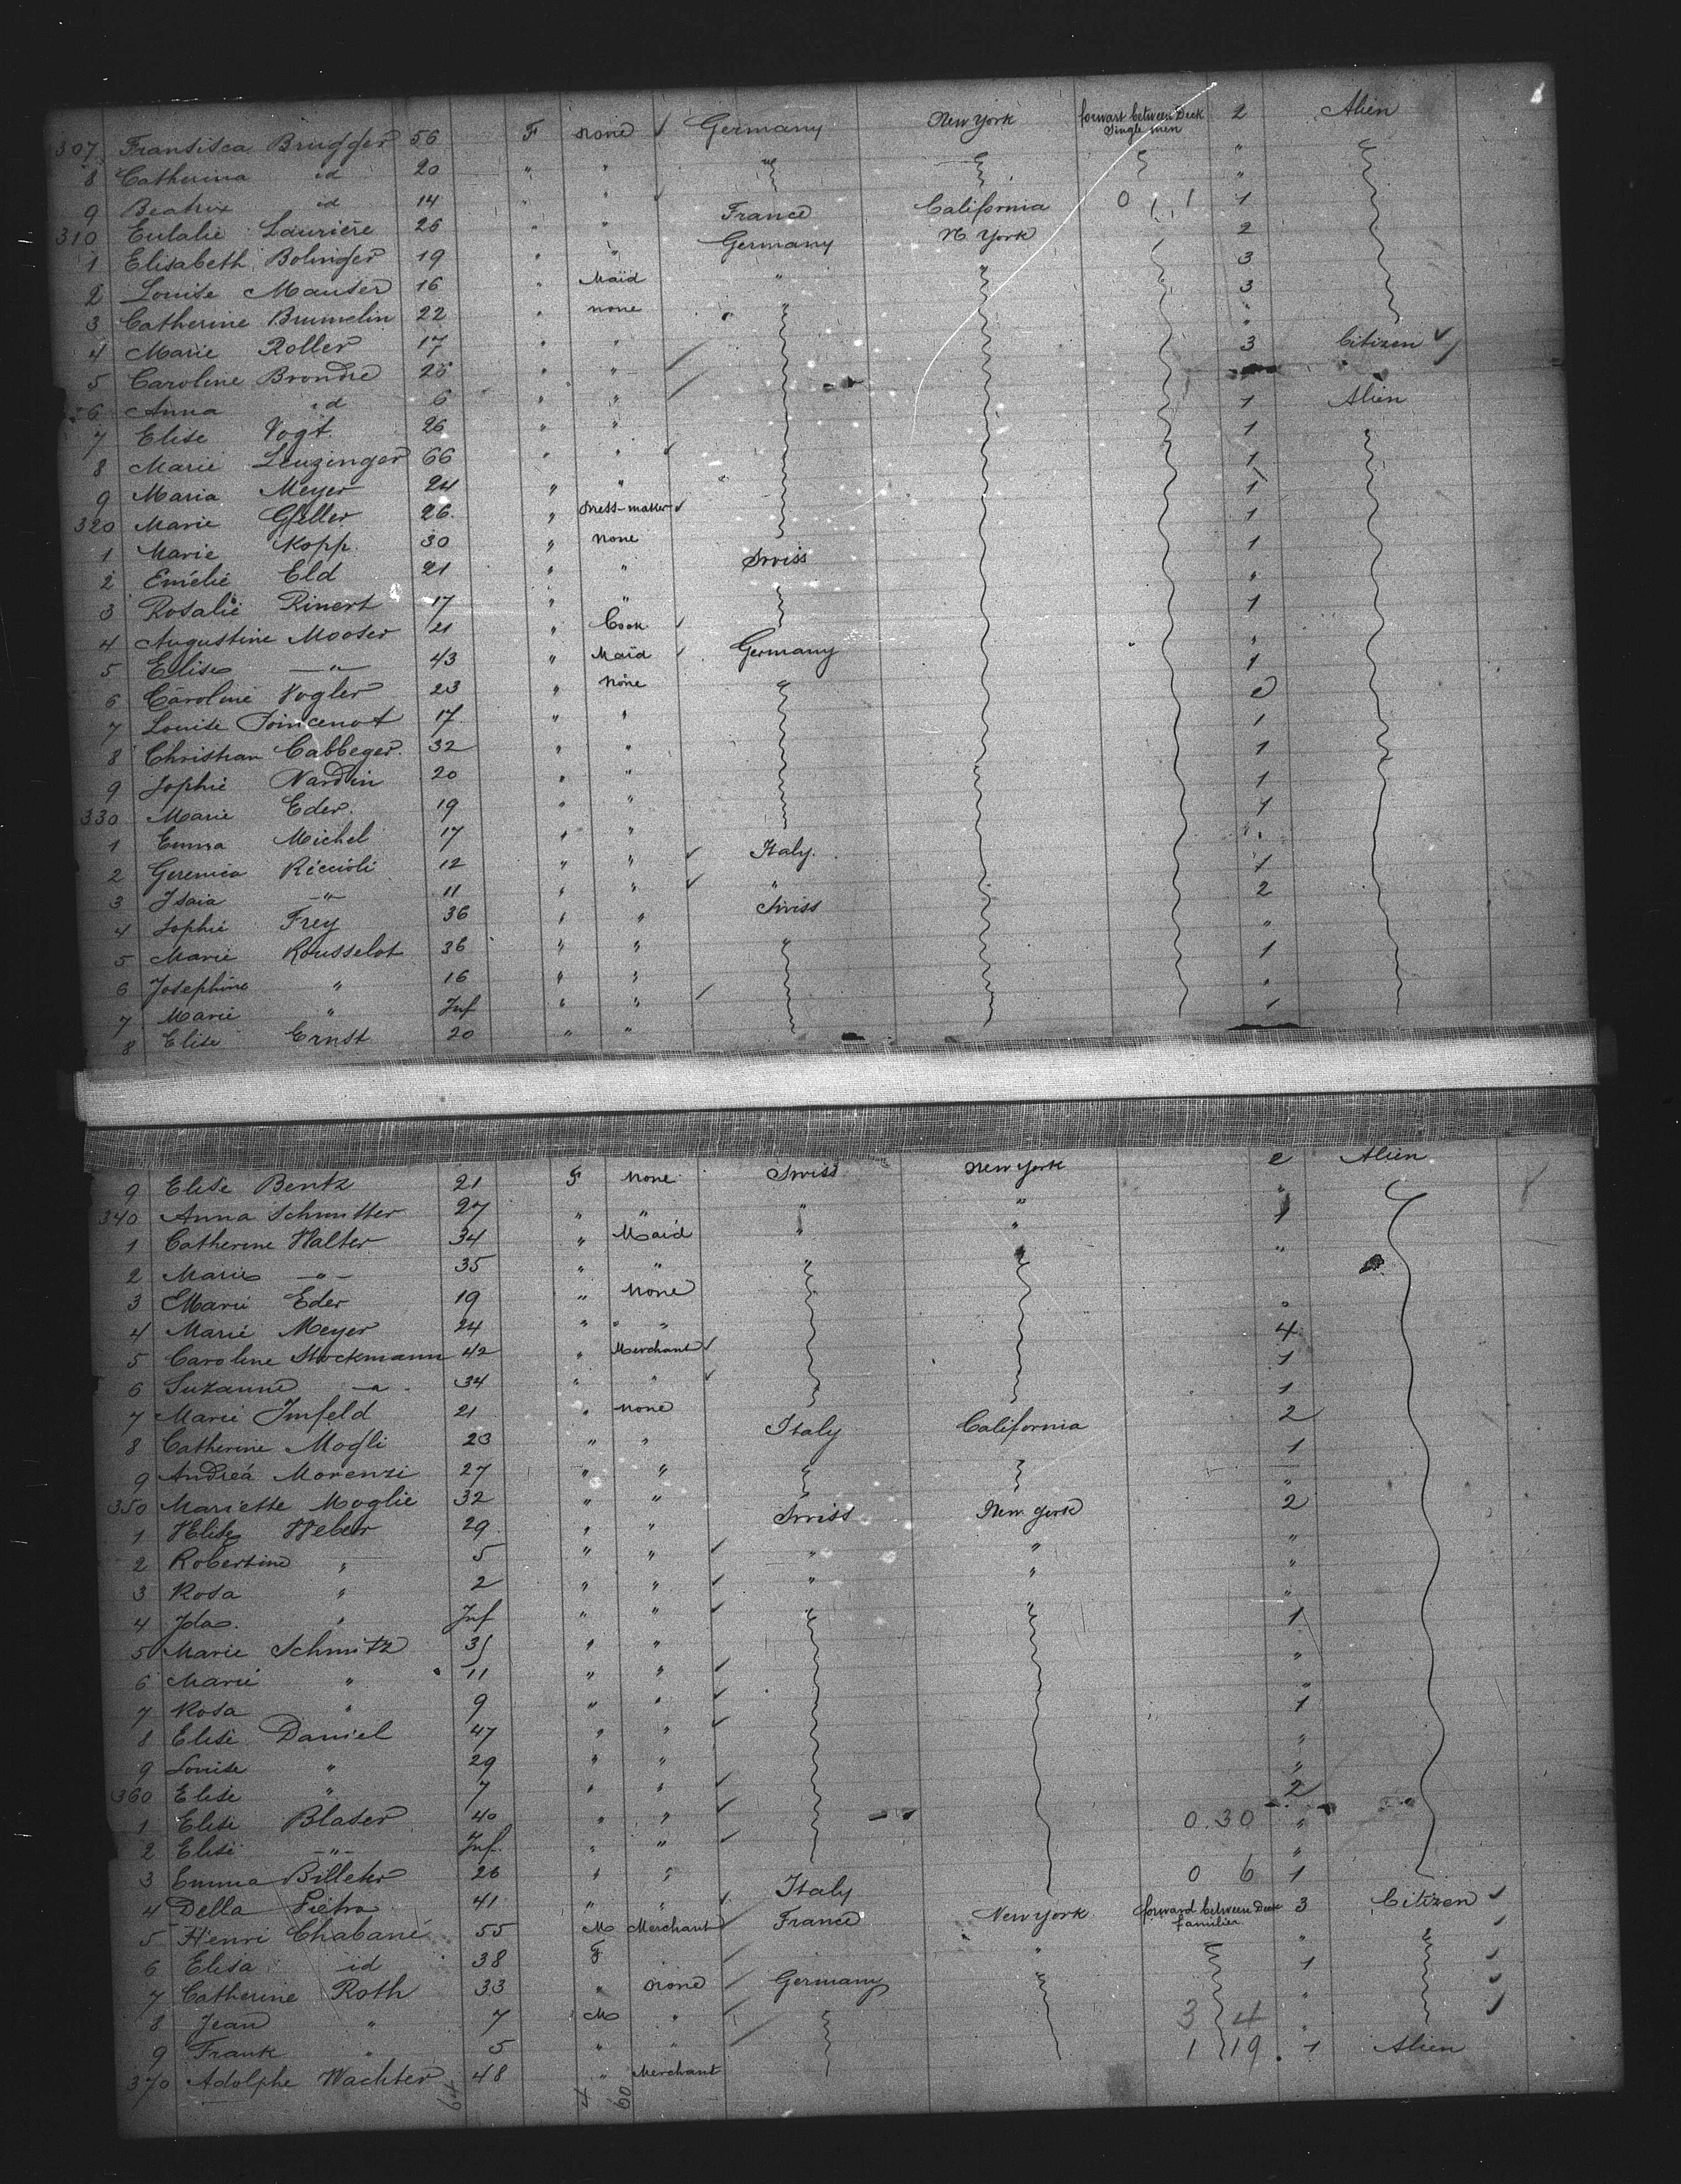 307 Fransisca Brugger 56 F none ✓ Germany New York forwart between Deck Single men 2 Alien
8 Catherina id 20 " " "
9 Beatrix id 14 " " ✓ "
310 Eutalie Laurière 26 " " France California 0 1 1 1
1 Elisabeth Bolinger 19 " " Germany N. York 2
2 Louise Mauser 16 " Maïd " " 3
3 Catherine Brumelin 22 " none 3
4 Marie Roller 17 " " "
5 Caroline Brondre 28 " " 3 Citizen ✓
6 Anna id 6 " "
7 Elise Vogt 26 " " 1 Alien
8 Marie Leuzinger 66 " " ✓ 1
9 Maria Meyer 24 " " 1
320 Marie Gfeller 26 " Dress-maker ✓ 1
1 Marie Kopp 30 " none 1
2 Emélie Eld 21 " " Swiss 1
3 Rosalie Rinert 17 " " "
4 Augustine Mooser 21 " Cook ✓ 1
5 Elise —"— 43 " Maïd ✓ Germany "
6 Caroline Vogler 23 " none 1
7 Louise Poincenot 17 " " 2
8 Christian Cabbeger 32 " " 1
9 Sophie Nardin 20 " " 1
330 Marie Eder 19 " " 1
1 Emma Michel 17 " " 1
2 Geremica Riccioli 12 " " ✓ Italy "
3 Isaia —"— 11 " " ✓ " 1
4 Sophie Frey 36 " " Swiss 2
5 Marie Rousselot 36 " " "
6 Josephine " 16 " " 1
7 Marie " Inf " " ✓ "
8 Elise Ernst 20 " " 1
9 Elise Bentz 21 F none Swiss New york 2 Alien
340 Anna Schmitter 27 " " " " "
1 Catherine Walter 34 " Maid " " 1
2 Marie —"— 35 " " " "
3 Marie Eder 19 " None
4 Marie Meyer 24 " " "
5 Caroline Stockmann 42 " Merchant ✓ 4
6 Suzanne —"— 34 " " ✓ 1
7 Marie Imfeld 21 " none 1
8 Catherine Mogli 23 " " Italy California 2
9 Andreá Morenzi 27 " " 1
350 Mariette Moglie 32 " " "
1 Elise Weber 29 " " Swiss New york 2
2 Robertine " 5 " " ✓ " " "
3 Rosa " 2 " " ✓ " " "
4 Ida " Inf " " ✓ "
5 Marie Schmitz 31 " " 1
6 Marie " 11 " " ✓ "
7 Rosa " 9 " " ✓ "
8 Elise Daniel 47 " " ✓ 1
9 Louise " 29 " " "
360 Elise " 7 " " ✓ "
1 Elise Blaser 40 " " ✓ 2
2 Elise —"— Inf. " " ✓ 0.30 "
3 Emma Billeter 26 " " "
4 Della Pietra 41 " " ✓ Italy 0 6 1
5 Henri Chabané 55 M Merchant ✓ France New York forward between Deck families 3 Citizen ✓
6 Elisa id 38 F " ✓ " " ✓
7 Catherine Roth 33 " None ✓ Germany 1 ✓
8 Jean " 7 M " ✓ " ✓
9 Frank " 5 " " ✓ 3 4 " ✓
370 Adolphe Wachter 48 " Merchant 1 19 1 Alien
64 4 60